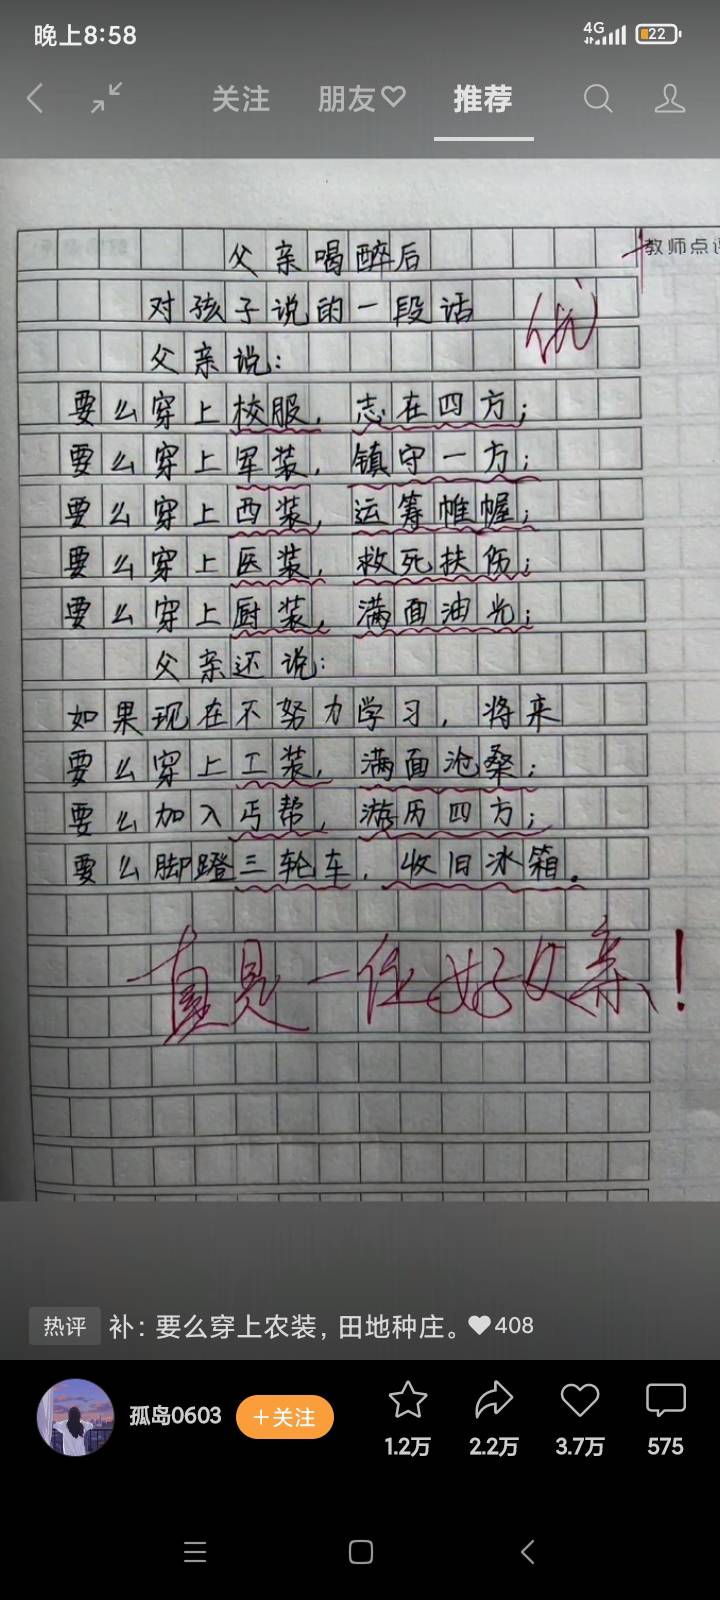 晚上8:58
4G
22
关注 朋友♡ 推荐
教师点评
父亲喝醉后
对孩子说的一段话
优
父亲说:
要么穿上校服，志在四方;
要么穿上军装，镇守一方;
要么穿上西装，运筹帷幄;
要么穿上医装，救死扶伤;
要么穿上厨装，满面油光;
父亲还说:
如果现在不努力学习，将来
要么穿上工装，满面沧桑;
要么加入丐帮，游历四方;
要么脚蹬三轮车，收旧冰箱。
真是一位好父亲!
热评 补: 要么穿上农装, 田地种庄。♥408
孤岛0603 +关注
1.2万 2.2万 3.7万 575